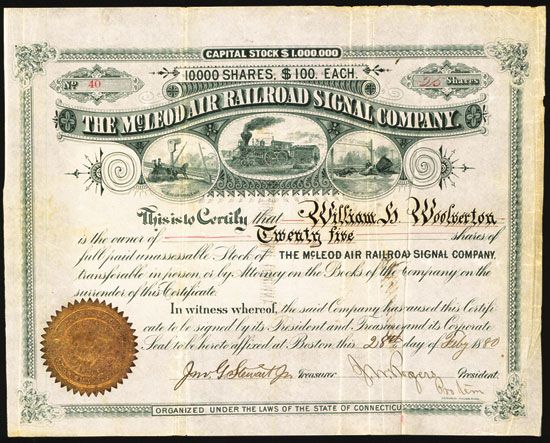 CAPITAL STOCK $1,000,000
No 40
10,000 SHARES, $100, EACH.
25 Shares
THE McLEOD AIR RAILROAD SIGNAL COMPANY.
This is to Certify that William H Woolverton
is the owner of Twenty five shares of
full paid unassessable Stock of THE McLEOD AIR RAILROAD SIGNAL COMPANY,
transferable in person or by Attorney on the Books of the Company on the
surrender of this Certificate.
In witness whereof, the said Company has caused this Certifi
cate to be signed by its President and Treasurer and its Corporate
Seal to be hereto affixed at Boston this 28th day of Feby 1880
Jno. G Stewart Jr. Treasurer J W Rogers President.
ORGANIZED UNDER THE LAWS OF THE STATE OF CONNECTICU